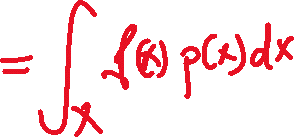 = ∫_X f(x) p(x) dx